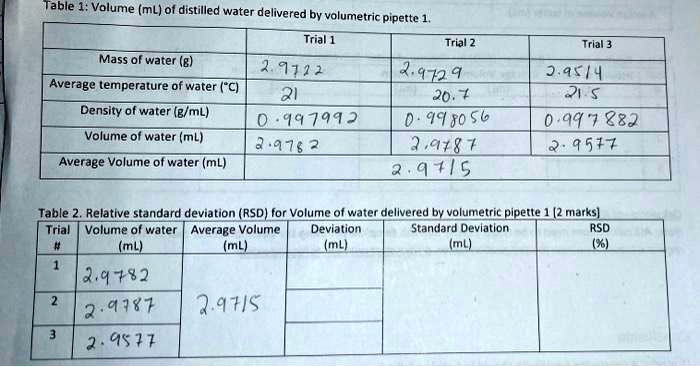 Table 1: Volume (mL) of distilled water delivered by volumetric pipette 1.
Trial 1 Trial 2 Trial 3
Mass of water (g) 2.9722 2.9729 2.9514
Average temperature of water (°C) 21 20.7 21.5
Density of water (g/mL) 0.997992 0.998056 0.997882
Volume of water (mL) 2.9782 2.9787 2.9577
Average Volume of water (mL) 2.9715
Table 2. Relative standard deviation (RSD) for Volume of water delivered by volumetric pipette 1 [2 marks]
Trial Volume of water Average Volume Deviation Standard Deviation RSD
# (mL) (mL) (mL) (mL) (%)
1 2.9782
2 2.9787 2.9715
3 2.9577